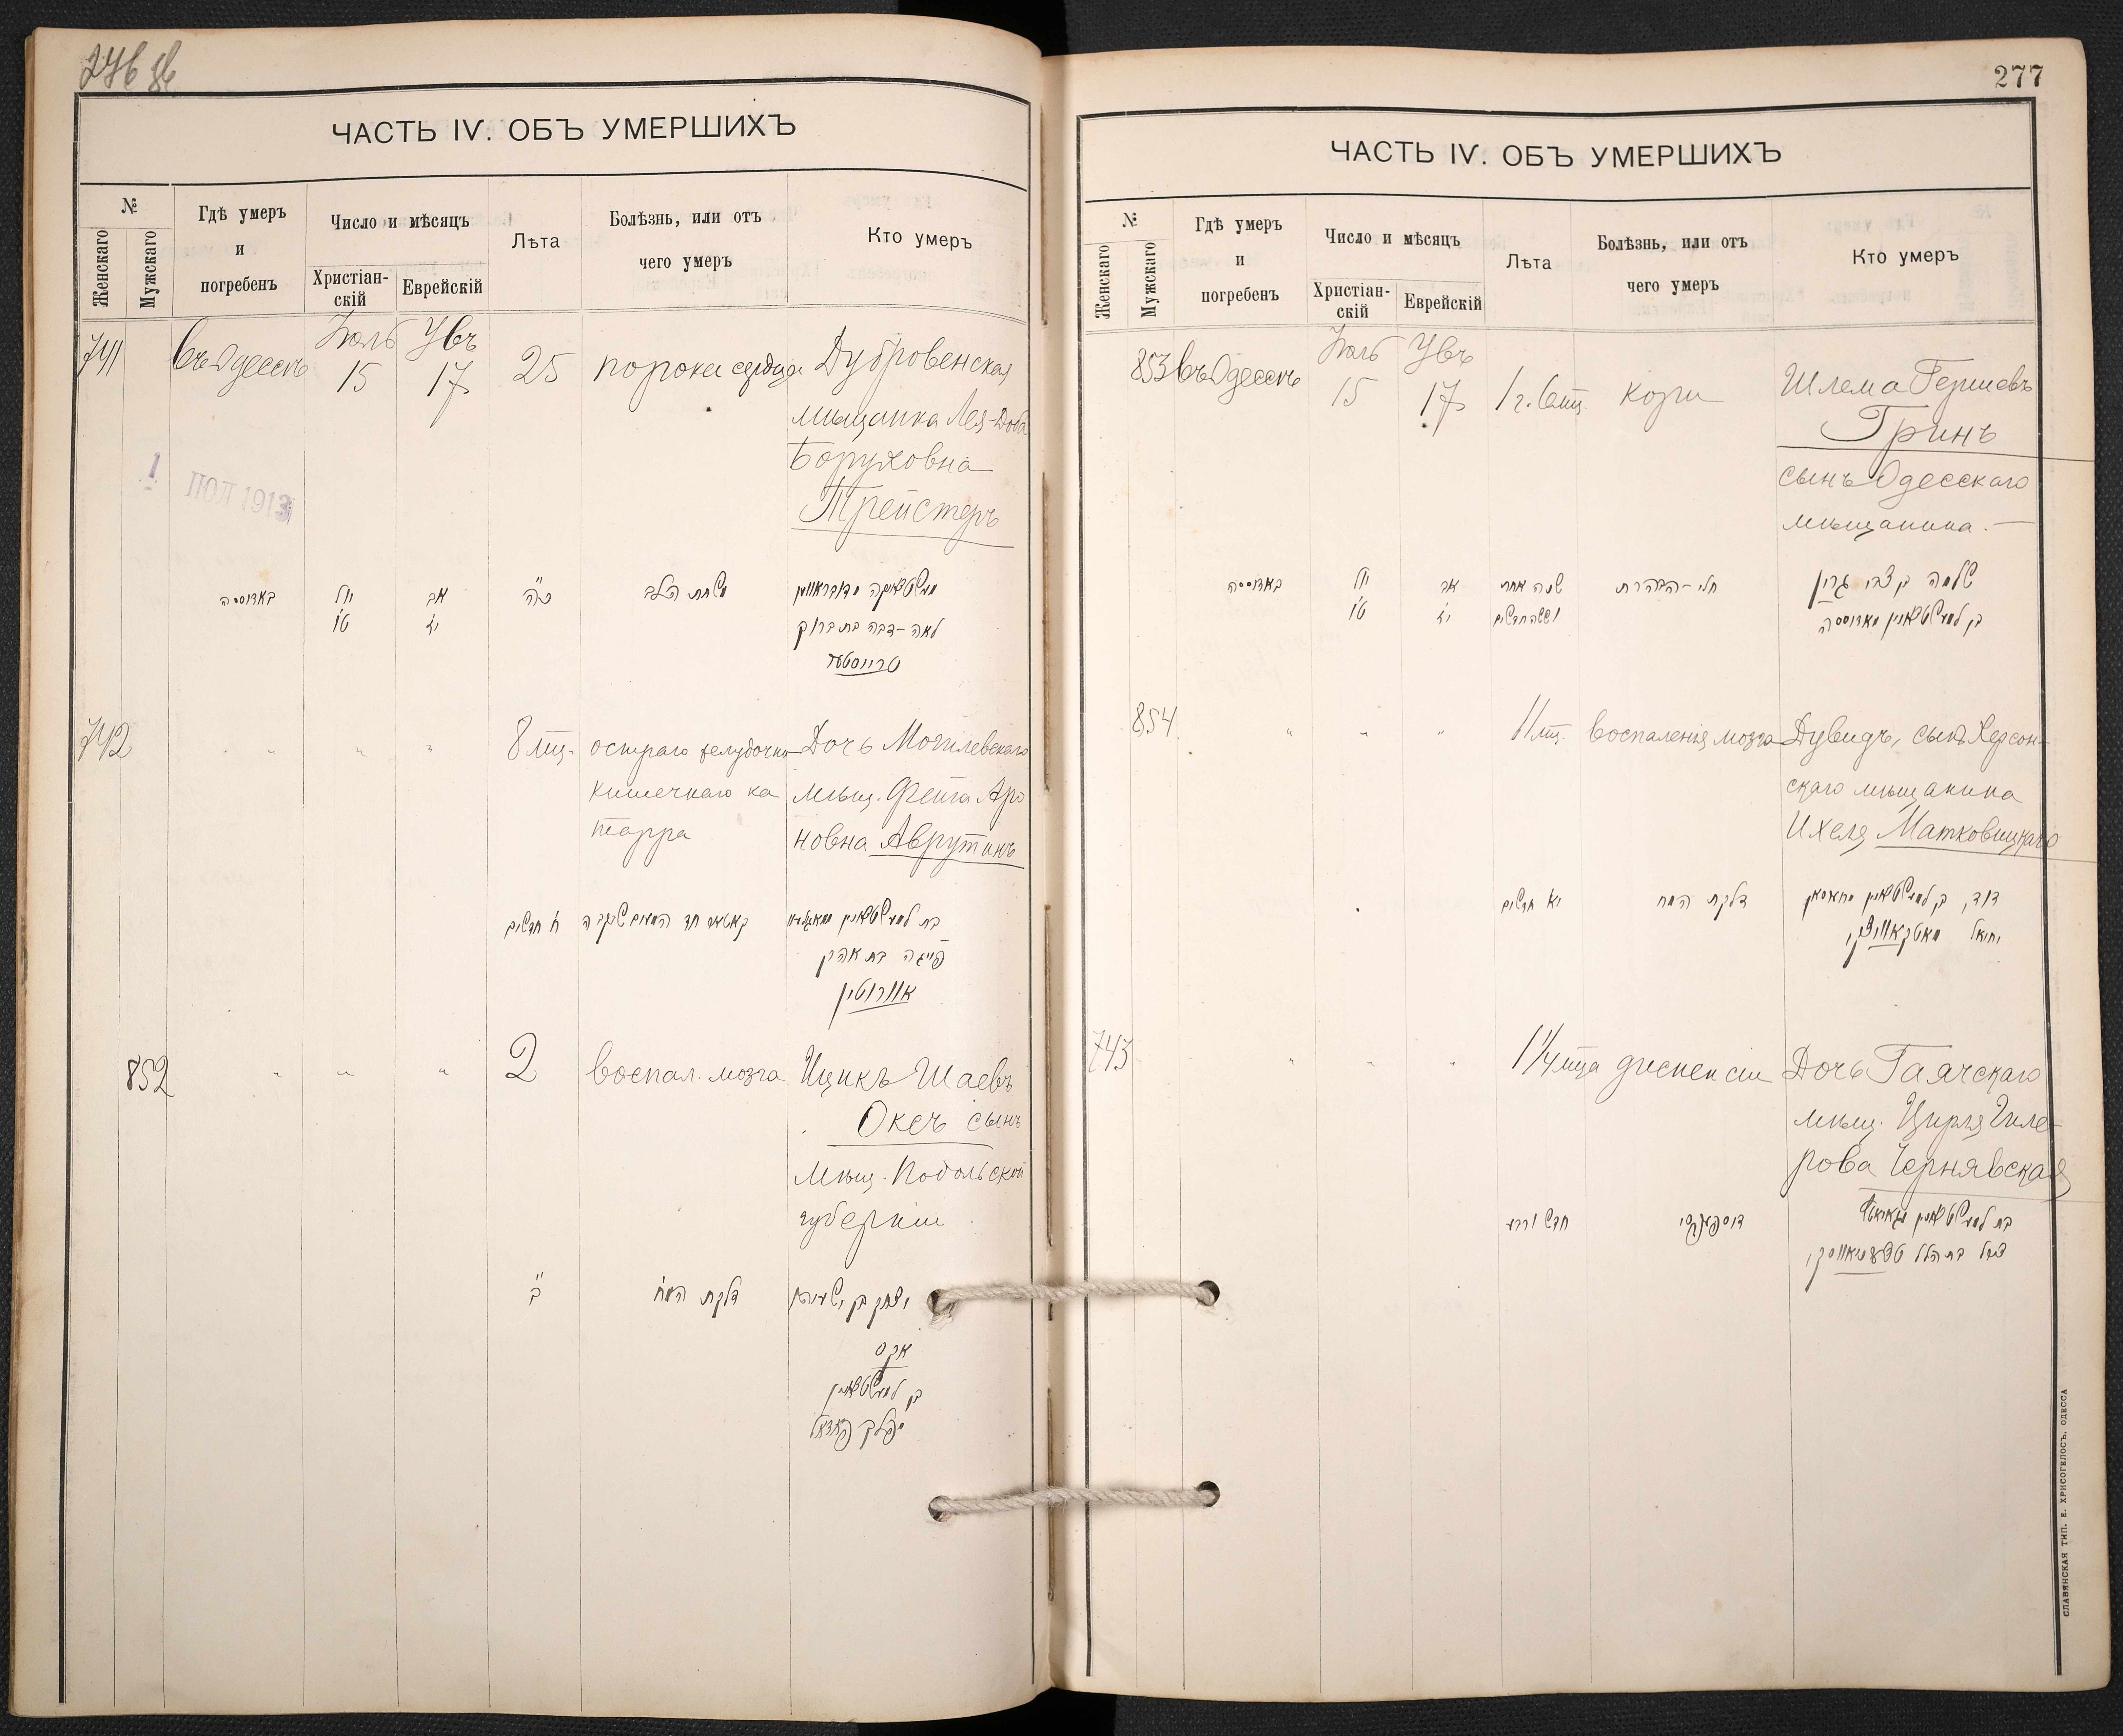 ЧАСТЬ IV. ОБЪ УМЕРШИХЪ
№
Женскаго
Мужскаго
Гдѣ умеръ
и
погребенъ
Число и мѣсяцъ
Христіан-
скій
Еврейскій
Лѣта
Болѣзнь, или отъ
чего умеръ
Кто умеръ
741
въ Одессѣ
Іюль
15
Увъ
17
25
порока сердца
Дубровенская
мѣщанка Лея-Доба
Боруховна
Трейстеръ
1 ПОЛ 1913
באדוססה
יול
ט"ו
אב
יז
כ"ה
משחת הלב
לאה-דבה בת ברוך
טרייסטער
742
" " "
8 мц.
остраго желудочно
кишечнаго ка
тарра
Дочь Могилевскаго
мѣщ. Фейга Аро
новна Аврутинъ
ח חדשים
פייגה בת אהרן
אוורוטין
852
" " "
2
воспал. мозга
Ицикъ Шаевъ
Оксъ сынъ
Мѣщ. Подольской
губерніи
ב"
דלקת המח
יצחק בן ישעיה
אקס
277
ЧАСТЬ IV. ОБЪ УМЕРШИХЪ
№
Женскаго
Мужскаго
Гдѣ умеръ
и
погребенъ
Число и мѣсяцъ
Христіан-
скій
Еврейскій
Лѣта
Болѣзнь, или отъ
чего умеръ
Кто умеръ
853
въ Одессѣ
Іюль
15
Увъ
17
1 г. 6 мц.
кори
Шлема Гершевъ
Гринъ
сынъ Одесскаго
мѣщанина.
באדוססה
יול
ט"ו
אב
יז
שנה אחת
וששה חדשים
חלי-הבהרת
שלמה בן צבי גרין
854
" " "
11 мц.
воспаленія мозга
Дувидъ, сынъ Херсон-
скаго мѣщанина
Ихеля Матковицкаго
יא חדשים
דלקת המח
743
" " "
1 1/4 мца
диспепсіи
Дочь Гаячскаго
мѣщ. Цирля Гиле-
рова Чернявская
חדש ורבע
СЛАВЯНСКАЯ ТИП. Е. ХРИСОГЕЛОСЪ, ОДЕССА